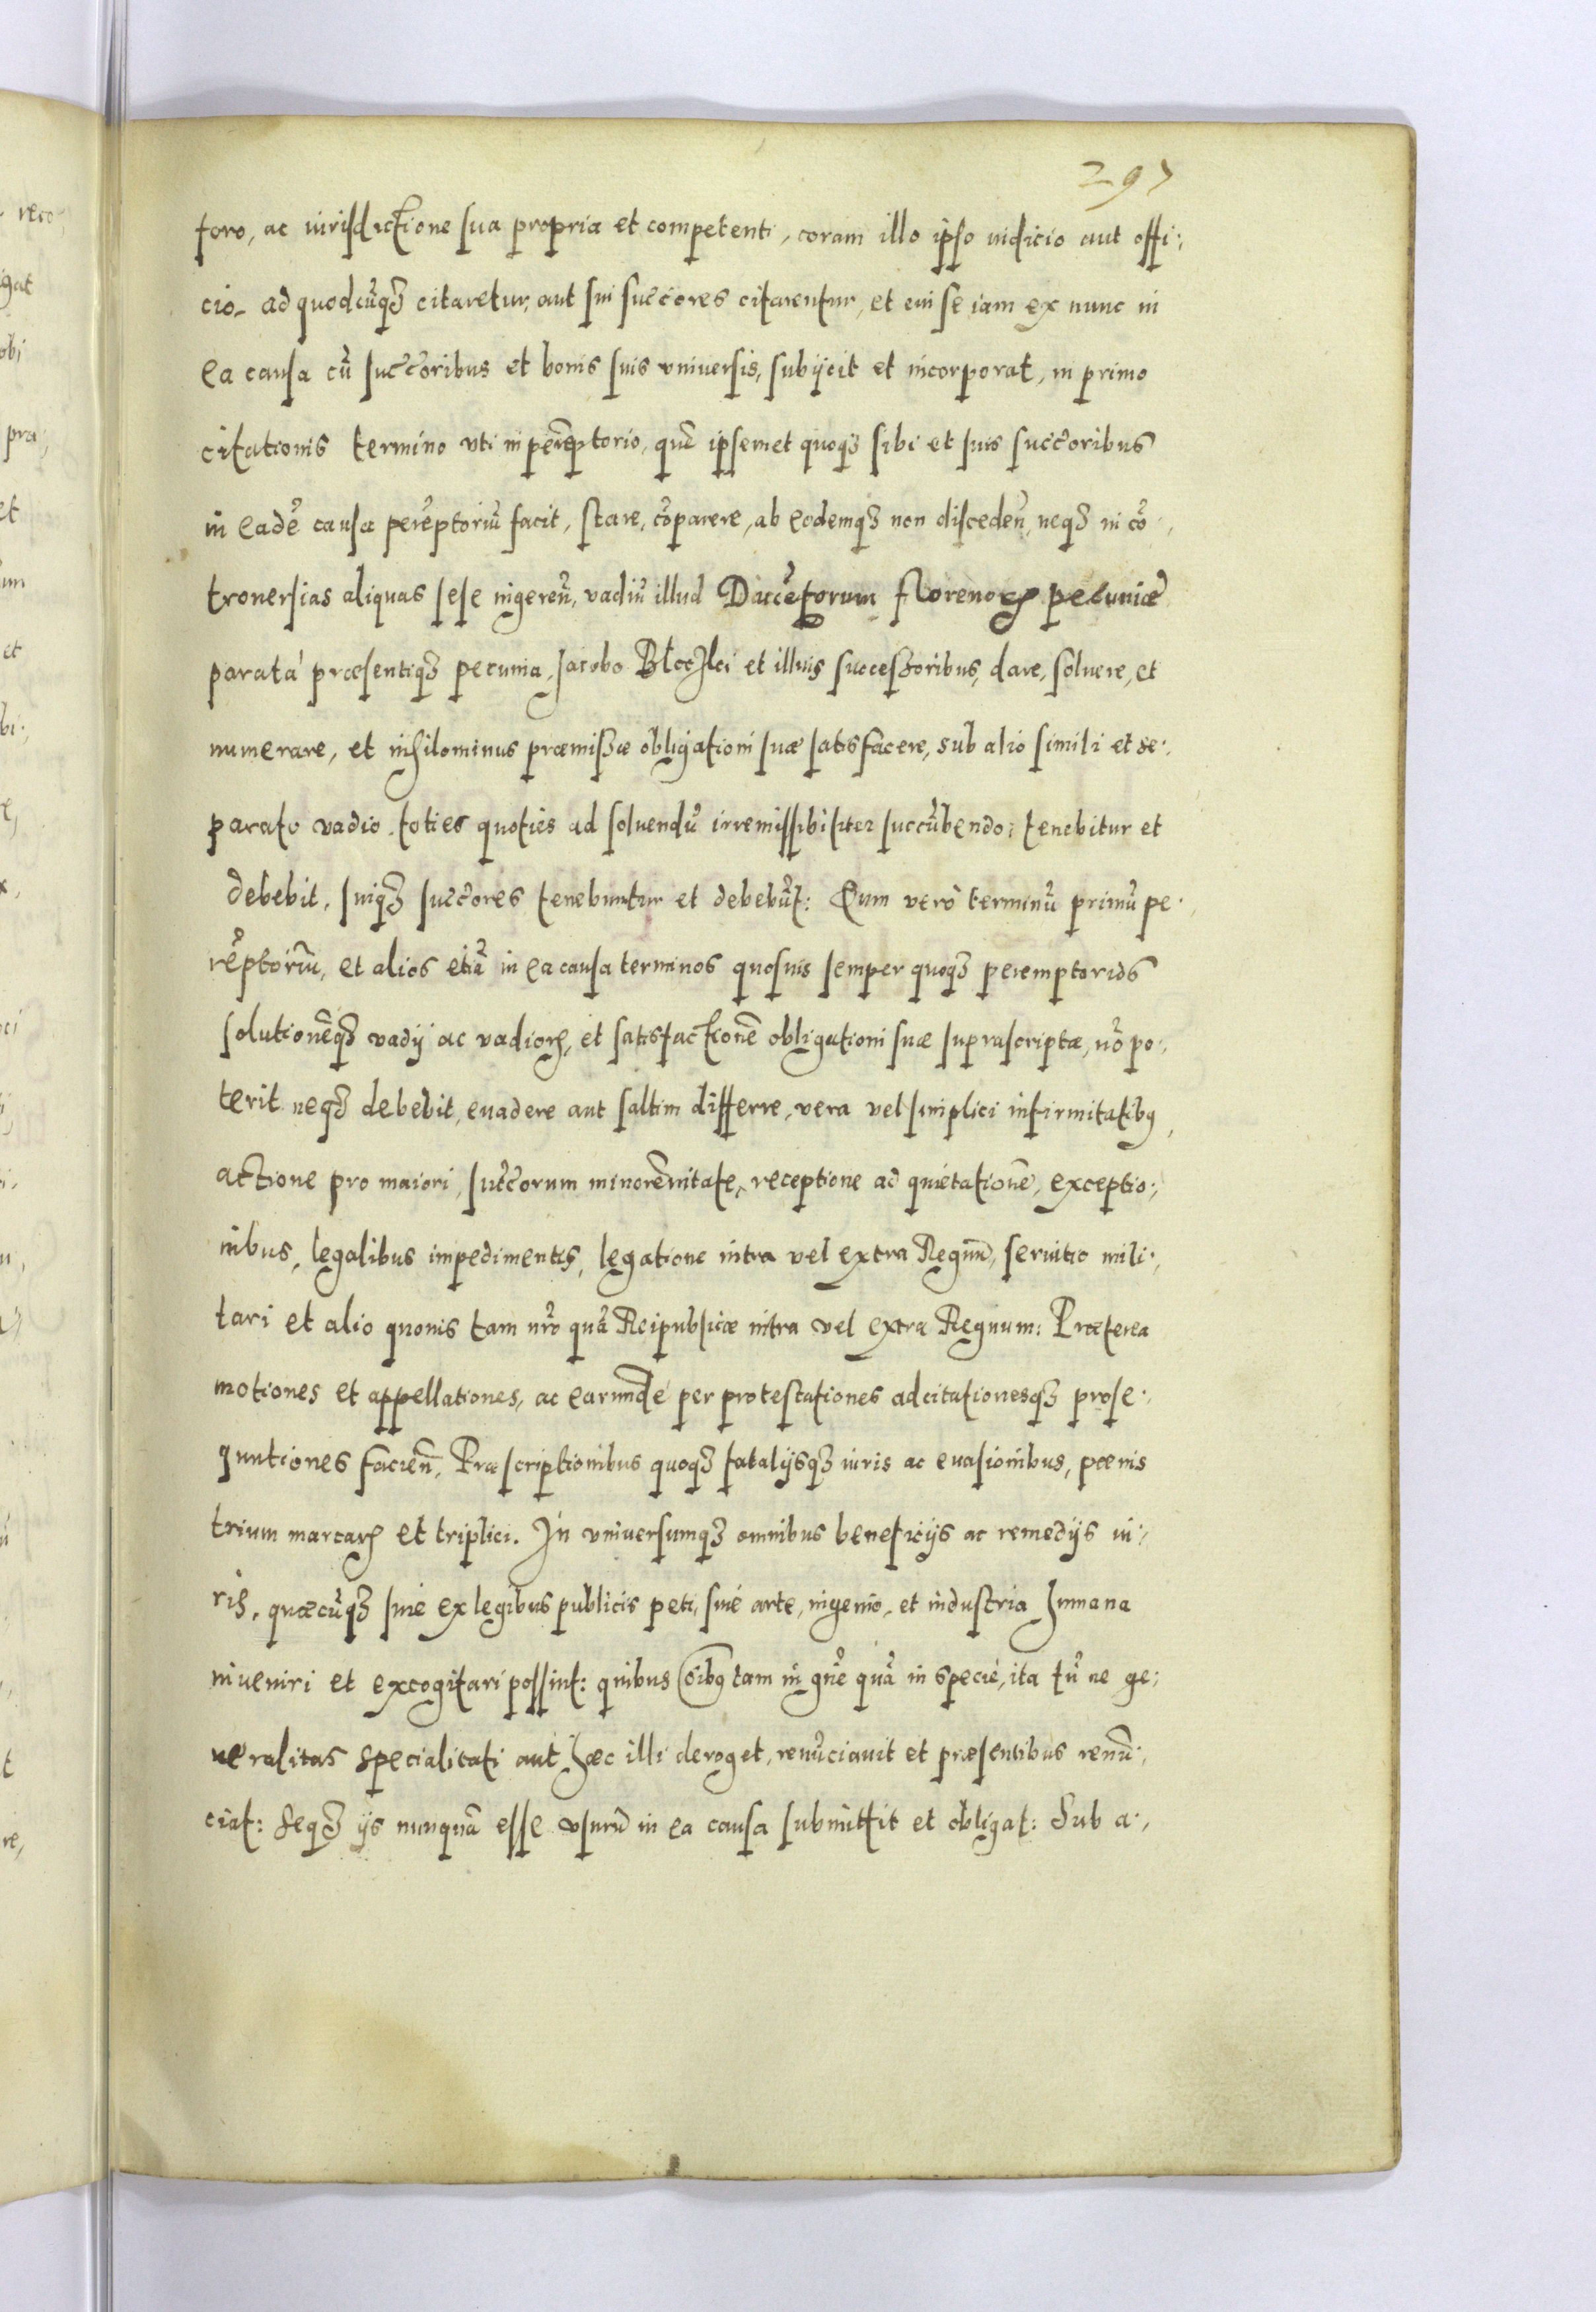 297
foro, ac iurisdictione sua propria et competenti, coram illo ipso iudicio aut offi:,
cio, ad quodcũq3 citaretur, aut sui succ̃ores citarentur, et cui se iam ex nunc in
ea causa cũ succ̃oribus et bonis suis vniuersis, subijcit et incorporat, in primo
citationis termino vti in perẽptorio, quẽ ipsemet quoq3 sibi et suis succ̃oribus
in eadẽ causa perẽptoriũ facit, stare, cõparere, ab eodemq3 non disceden̄, neq3 in cõ:,
trouersias aliquas sese ingeren̄, vadiũ illud Ducẽtorum florenorꝝ pecuniæ
parata præsentiq3 pecunia, Jacobo et illius successoribus, dare, soluere, et
numerare, et nihilominus præmissæ obligationi suæ satisfacere, sub alio simili et se:,
parato vadio toties quoties ad soluendũ irremissibiliter succũbendo, tenebitur et
debebit, suiq3 succ̃ores tenebuntur et debebũt: Quem vero terminũ primũ pe:,
rẽptoriũ, et alios etiã in ea causa terminos quosuis semper quoq3 peremptorios
solutionẽq3 vadij ac vadiorꝝ, et satisfactionẽ obligationi suæ suprascriptæ, nõ po:,
terit neq3 debebit, euadere aut saltim differre, vera vel simplici infirmitatibꝰ,
actione pro maiori, succ̃orum minorẽnitate, receptione ad quietationẽ, exceptio:,
nibus, legalibus impedimentis, legatione intra vel extra Regnũ, seruitio mili:,
tari et alio quouis tam nr̃o quã Reipublicæ intra vel extra Regnum: Præterea
motiones et appellationes, ac earundẽ per protestationes adcitationesq3 prose:,
quutiones facien̄, Præscriptionibus quoq3 fatalijsq3 iuris ac euasionibus, pœnis
trium marcarꝝ et triplici. In vniuersumq3 omnibus beneficijs ac remedijs iu:,
ris, quæcũq3 siue ex legibus publicis peti, siue arte, ingenio, et industria humana
inueniri et excogitari possint: quibus oĩbꝰ tam in gñe quã in specie, ita tñ ne ge:,
neralitas specialitati aut hæc illi deroget, renũciauit et præsentibus renũ:,
ciat: seq3 ijs nunquã esse vsurũ in ea causa submittit et obligat: Sub a:,